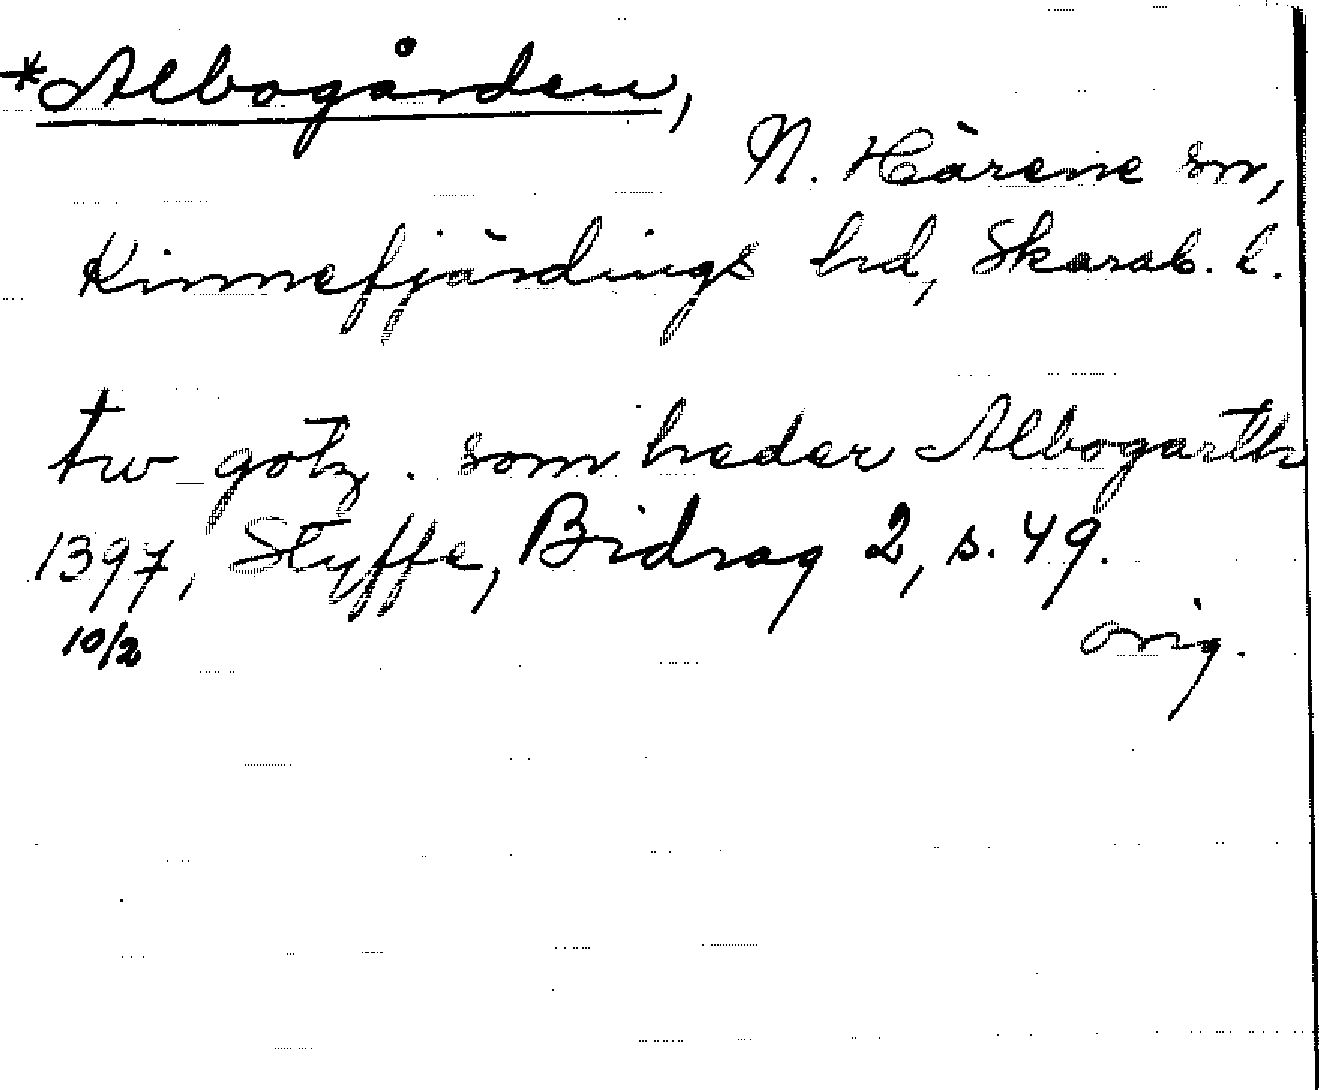 *Albogården,
N. Härene sn,
Kinnefjärdings hd, Skarab. l.
tw gotz. som heder Albogarth
1397, Styffe, Bidrag 2, s. 49.
10/2 orig.